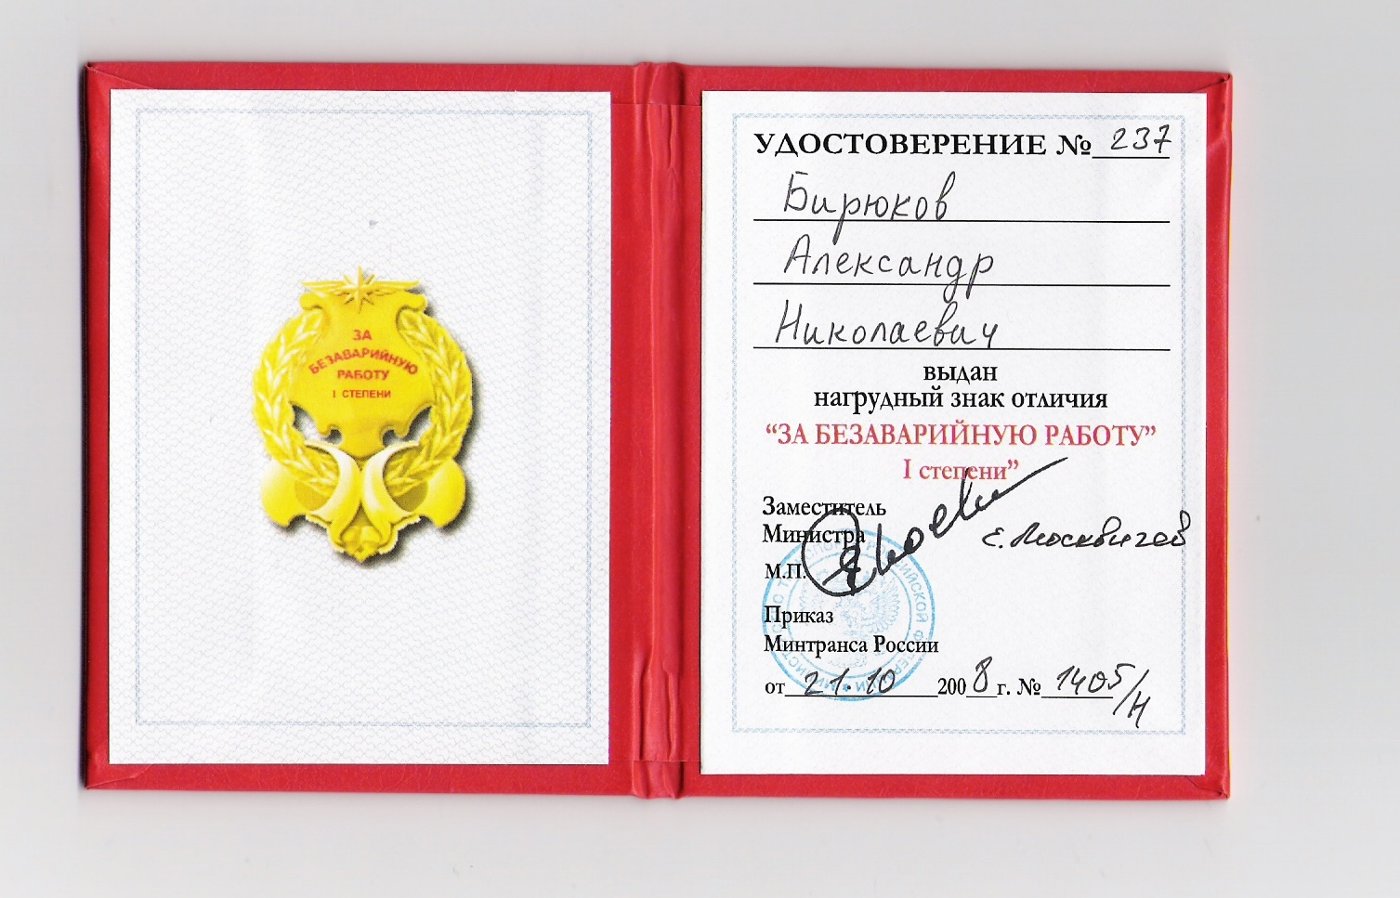 ЗА
БЕЗАВАРИЙНУЮ
РАБОТУ
I СТЕПЕНИ
УДОСТОВЕРЕНИЕ № 237
Бирюков
Александр
Николаевич
выдан
нагрудный знак отличия
“ЗА БЕЗАВАРИЙНУЮ РАБОТУ”
I степени”
Заместитель
Министра
Е. Москвичев
М.П.
Приказ
Минтранса России
от 21.10 2008 г. № 1405/н